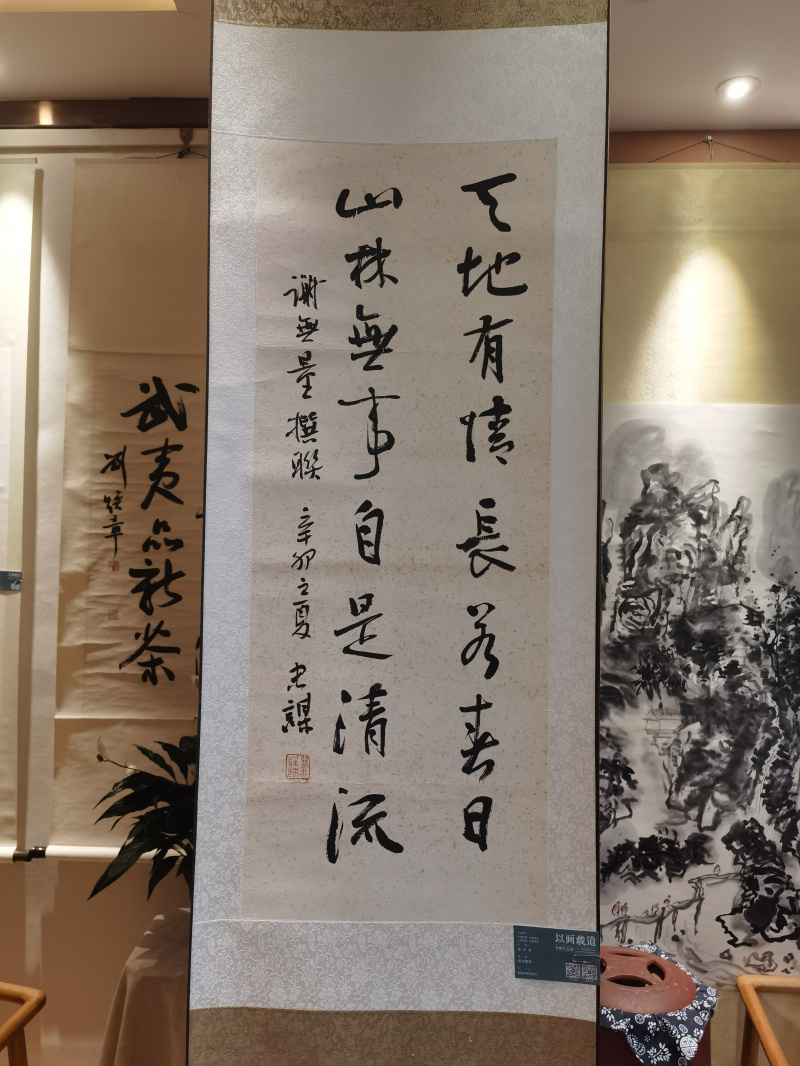 天地有情長若春日
山林無事自是清流
謝無量撰聯 辛卯之夏 忠謀
武夷品新茶
以画载道